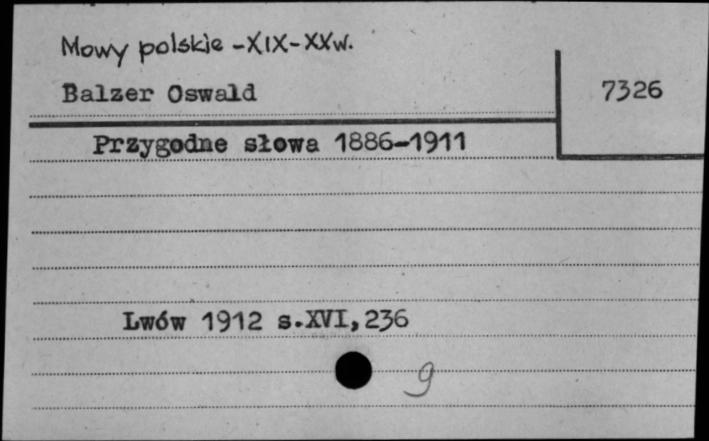 Mowy polskie - XIX - XXw.
Balzer Oswald
7326
Przygodne słowa 1886-1911
Lwów 1912 s.XVI,236
9